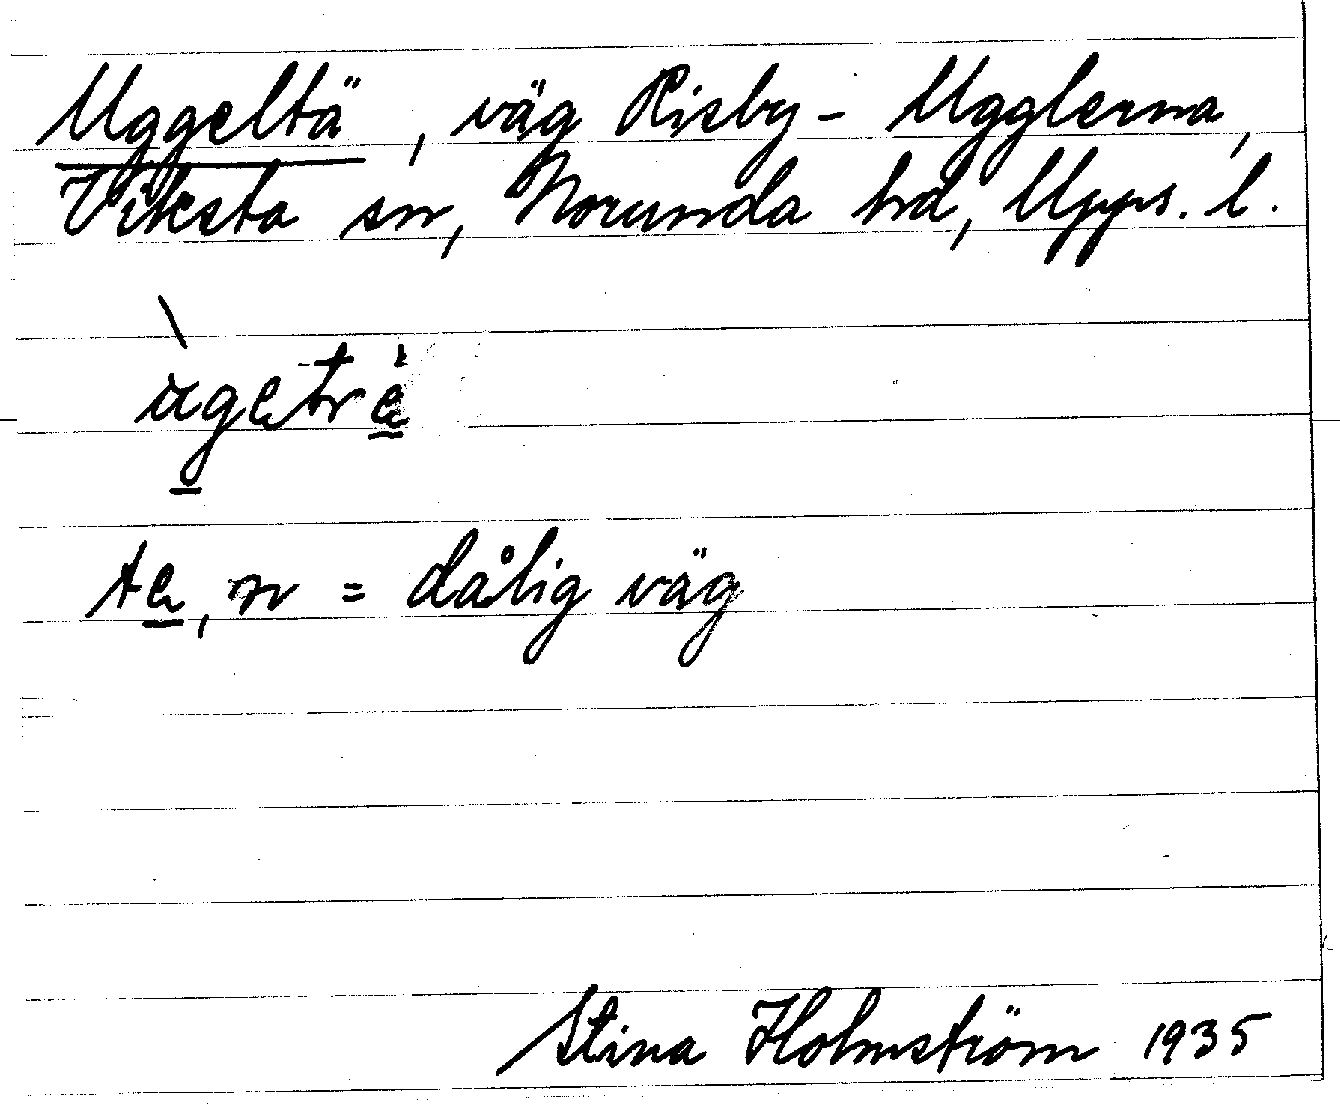 Uggeltä, väg Risby - Ugglerna,
Viksta sn, Norunda hd, Upps. l.
tæ, n = dålig väg
Stina Holmström 1935